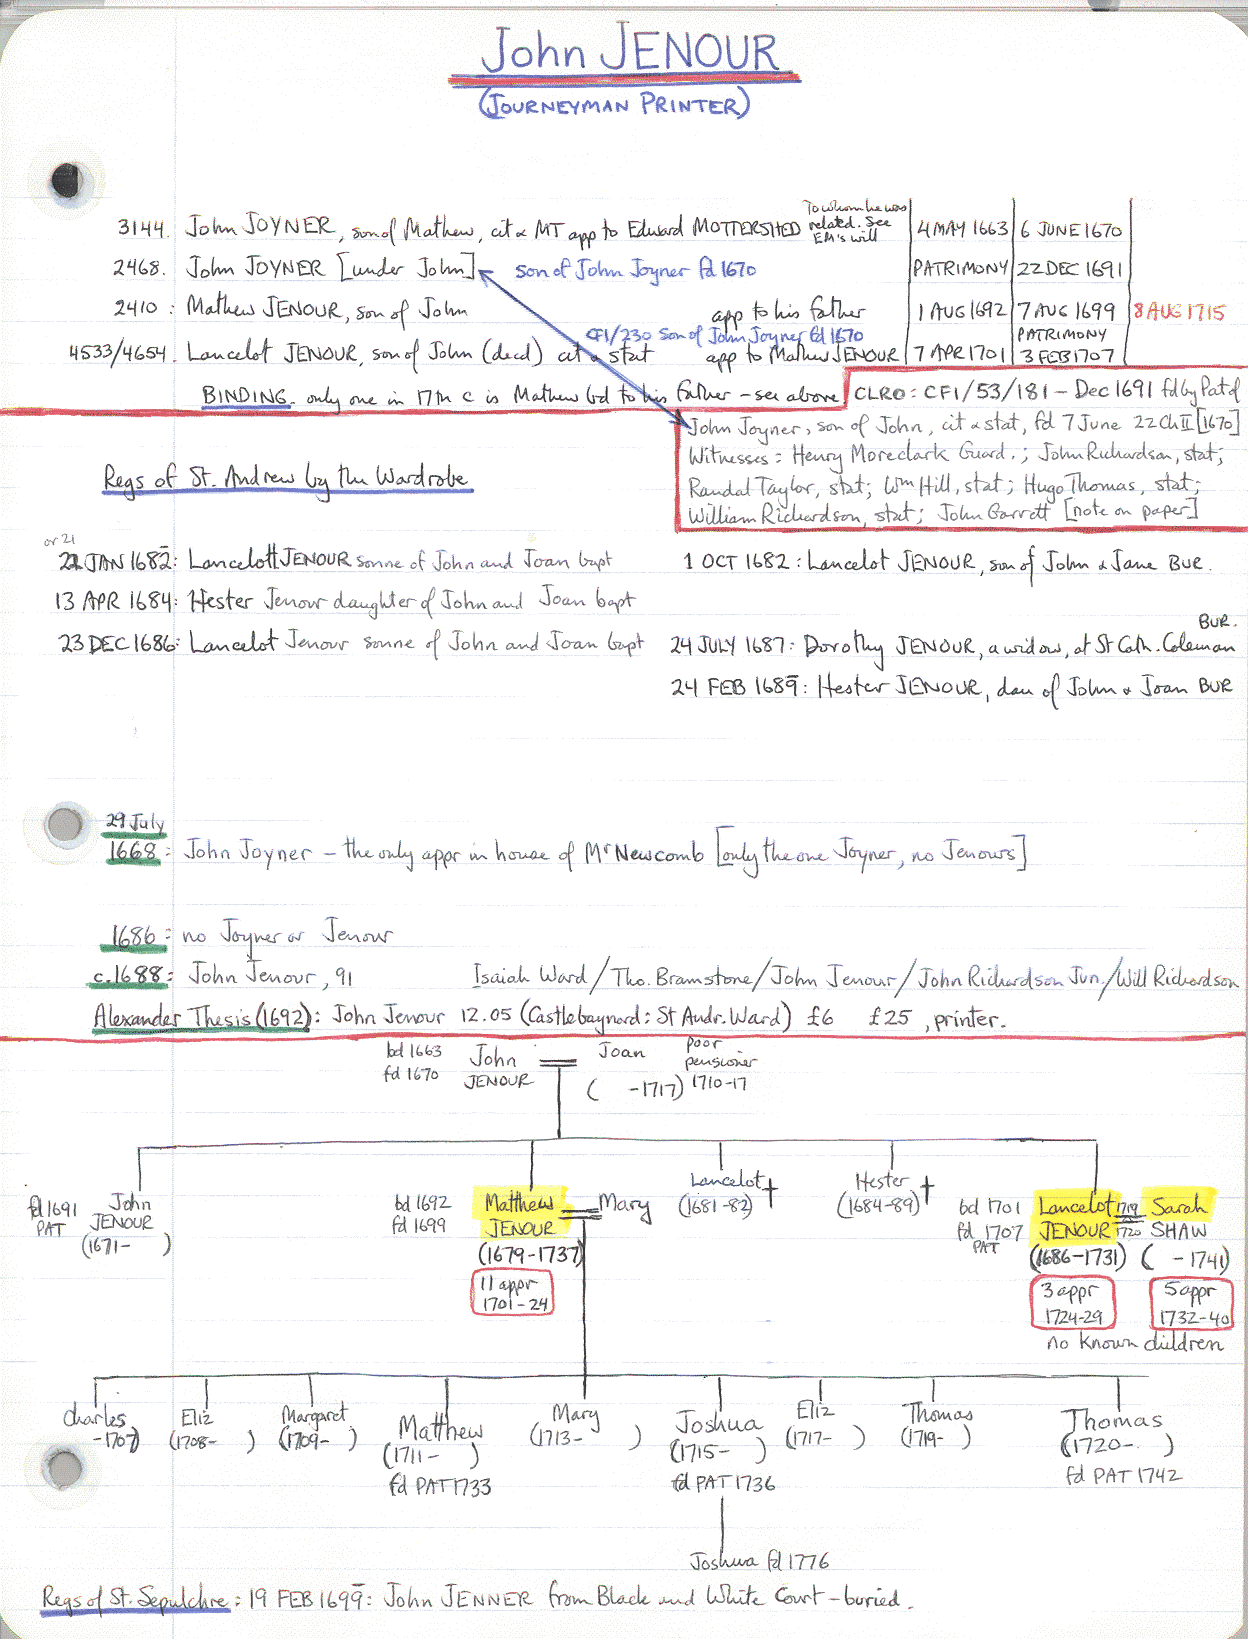 John JENOUR
(JOURNEYMAN PRINTER)
3144. John JOYNER, son of Mathew, cit & MT app to Edward MOTTERSHED To whom he was related. See EM's will 4 MAY 1663 6 JUNE 1670
2468. John JOYNER [under John] son of John Joyner fd 1670 PATRIMONY 22 DEC 1691
2410: Mathew JENOUR, son of John app to his father 1 AUG 1692 7 AUG 1699 8 AUG 1715
CF1/230 son of John Joyner fd 1670 PATRIMONY
4533/4654. Lancelot JENOUR, son of John (decd) cit & stat app to Mathew JENOUR 7 APR 1701 3 FEB 1707
BINDING. only one in 17th c is Mathew bd to his father - see above.
CLRO: CF1/53/181 - Dec 1691 fd by Pat of
John Joyner, son of John, cit & stat, fd 7 June 22 Ch II [1670]
Witnesses: Henry Moreclark Guard.; John Richardson, stat;
Randal Taylor, stat; Wm Hill, stat; Hugo Thomas, stat;
William Richardson, stat; John Garrett [note on paper]
Regs of St. Andrew by the Wardrobe
or 21
22 JAN 1682: Lancelott JENOUR sonne of John and Joan bapt
1 OCT 1682: Lancelot JENOUR, son of John & Jane BUR.
13 APR 1684: Hester Jenour daughter of John and Joan bapt
23 DEC 1686: Lancelot Jenour sonne of John and Joan bapt
24 JULY 1687: Dorothy JENOUR, a widow, at St Cath. Coleman BUR.
24 FEB 1689: Hester JENOUR, dau of John & Joan BUR
29 July
1668: John Joyner - the only appr in house of Mr Newcomb [only the one Joyner, no Jenours]
1686: no Joyner or Jenour
c.1688: John Jenour, 91 Isaiah Ward/Tho. Bramstone/John Jenour/John Richardson Jun./Will Richardson
Alexander Thesis (1692): John Jenour 12.05 (Castlebaynard: St Andr. Ward) £6 £25, printer.
bd 1663 John Joan poor
fd 1670 JENOUR ( -1717) pensioner
1710-17
fd 1691 John
PAT JENOUR
(1671- )
bd 1692 Matthew Mary
fd 1699 JENOUR
(1679-1737)
11 appr
1701-24
Lancelot †
(1681-82)
Hester †
(1684-89)
bd 1701 Lancelot 1719 Sarah
fd 1707 JENOUR 1720 SHAW
PAT (1686-1731) ( -1741)
3 appr 5 appr
1724-29 1732-40
no known children
Charles
-1707
Eliz
(1708- )
Margaret
(1709- )
Matthew
(1711- )
fd PAT 1733
Mary
(1713- )
Joshua
(1715- )
fd PAT 1736
Eliz
(1717- )
Thomas
(1719- )
Thomas
(1720- )
fd PAT 1742
Joshua fd 1776
Regs of St. Sepulchre: 19 FEB 1699: John JENNER from Black and White Court - buried.